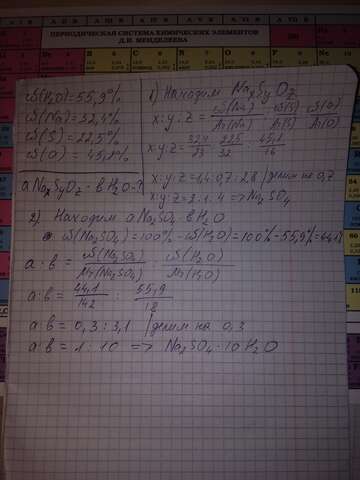 ПЕРИОДИЧЕСКАЯ СИСТЕМА ХИМИЧЕСКИХ ЭЛЕМЕНТОВ
Д.И. МЕНДЕЛЕЕВА
ω(H₂O)=55,9%
ω(Na)=32,4%
ω(S)=22,5%
ω(O)=45,1%
aNaxSyOz·bH₂O-?
1) Находим NaxSyOz
x:y:z = ω(Na)/Ar(Na) : ω(S)/Ar(S) : ω(O)/Ar(O)
x:y:z = 32,4/23 : 22,5/32 : 45,1/16
x:y:z = 1,4:0,7:2,8 | делим на 0,7
x:y:z = 2:1:4 => Na₂SO₄
2) Находим aNa₂SO₄·bH₂O
ω(Na₂SO₄)=100%-ω(H₂O)=100%-55,9%=44,1%
a:b = ω(Na₂SO₄)/Mr(Na₂SO₄) : ω(H₂O)/Mr(H₂O)
a:b = 44,1/142 : 55,9/18
a:b = 0,3:3,1 | делим на 0,3
a:b = 1:10 => Na₂SO₄·10H₂O